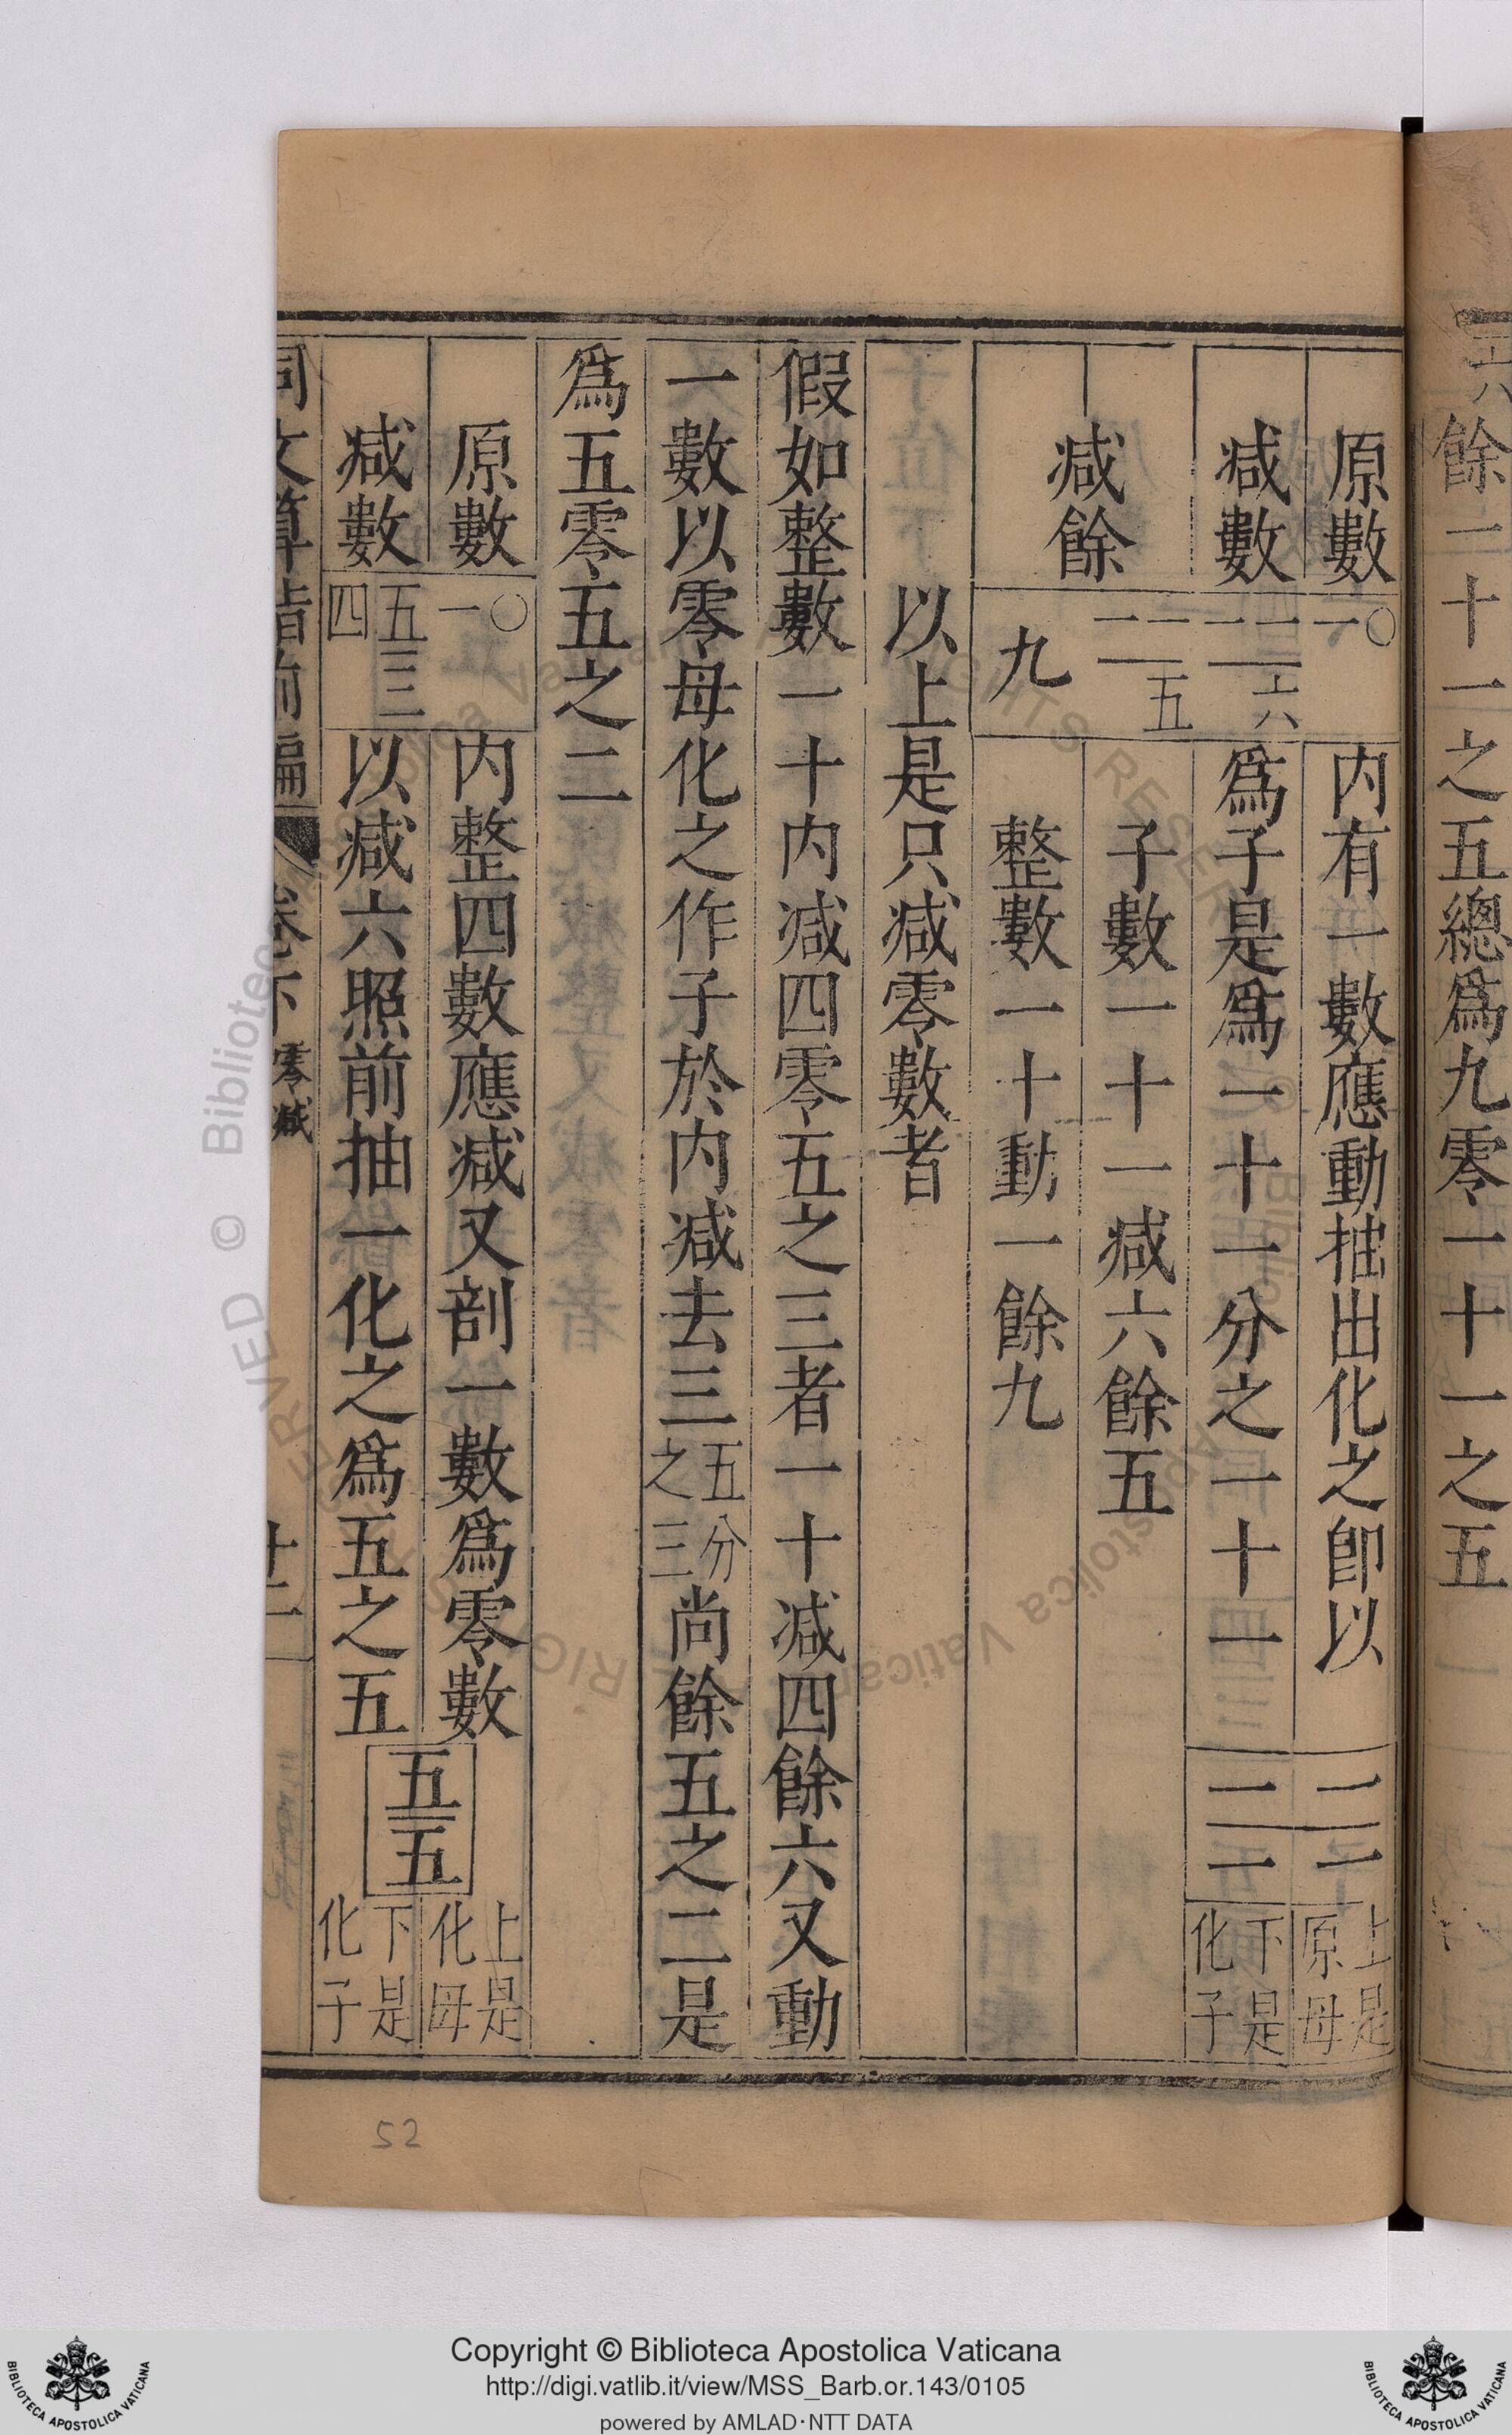 餘一十一之五總爲九零一十一之五
原數 一〇 内有一數應動抽出化之卽以 一一 一一 上是原母
減數 一一 一一 六 爲子是爲一十一分之一十一 下是化子
減餘 一一 一一 五 子數一十一減六餘五
九 整數一十動一餘九
以上是只減零數者
假如整數一十内減四零五之三者一十減四餘六又動
一數以零母化之作子於内減去三五分之三尚餘五之二是
爲五零五之二
原數 一〇 内整四數應減又剖一數爲零數 五 五 上是化母
減數 四 五 三 以減六照前抽一化之爲五之五 下是化子
同文算指前編 卷下 零減 廿二
52
Copyright © Biblioteca Apostolica Vaticana
http://digi.vatlib.it/view/MSS_Barb.or.143/0105
powered by AMLAD·NTT DATA